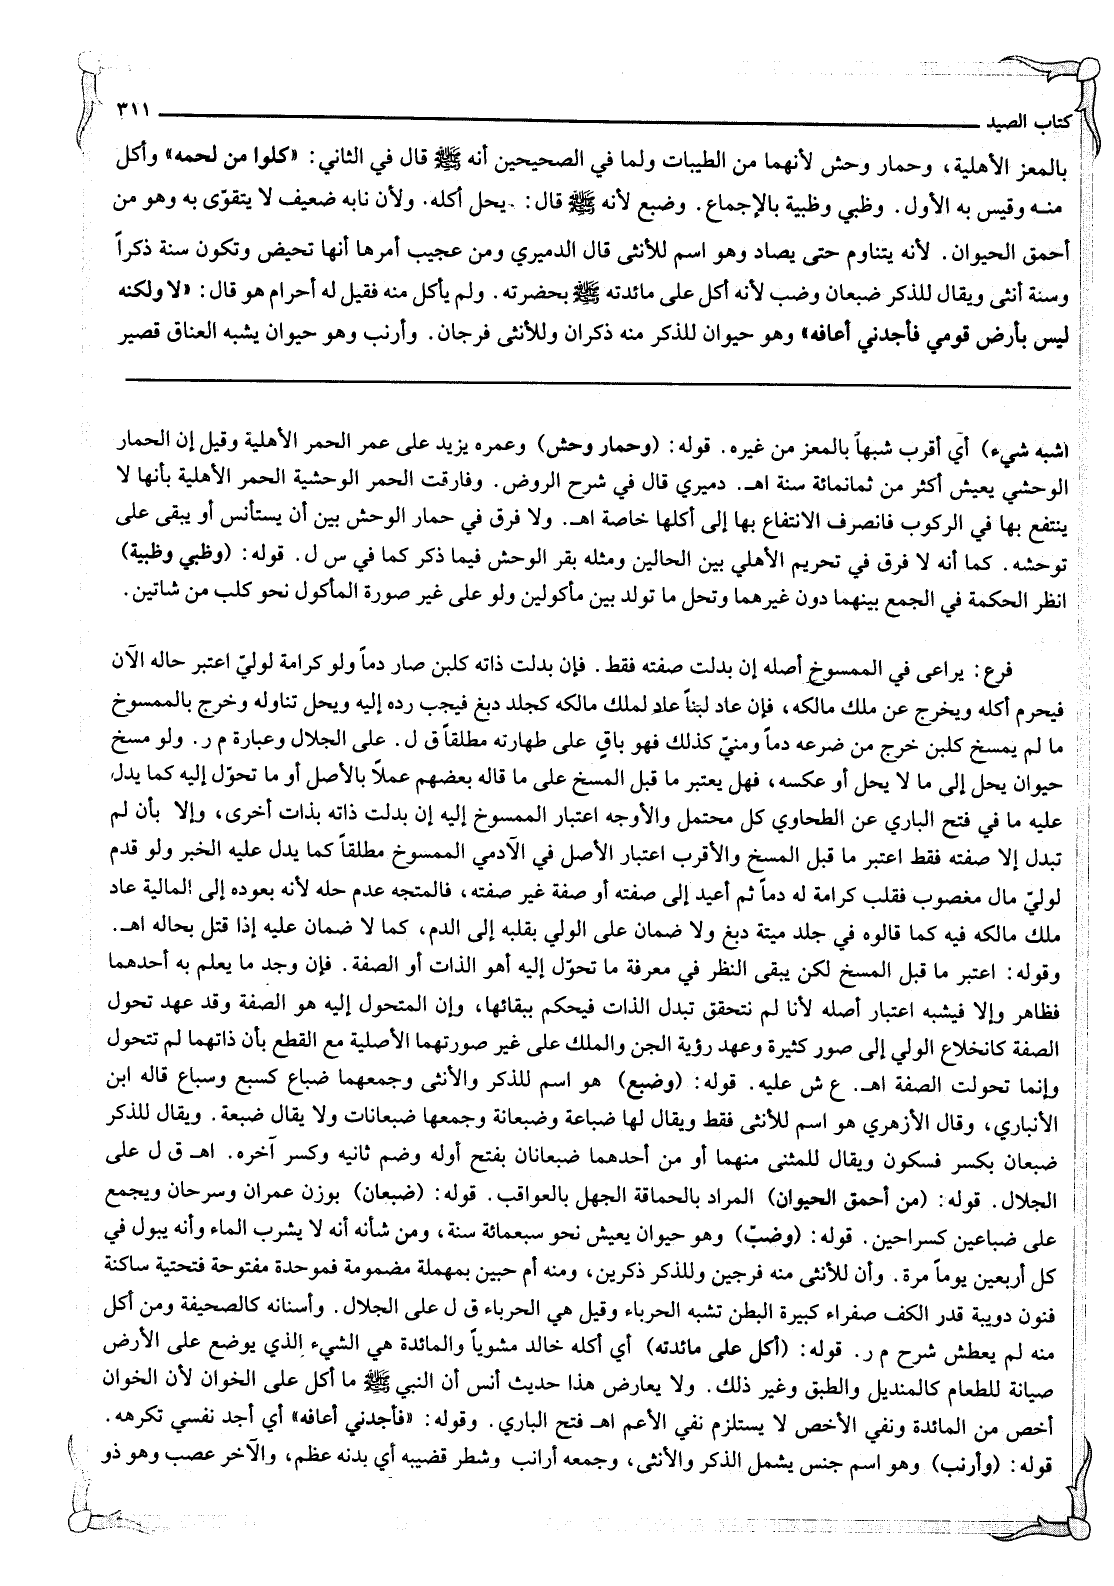 كتاب الصيد ٣١١
بالمعز الأهلية، وحمار وحش لأنهما من الطيبات ولما في الصحيحين أنه ﷺ قال في الثاني: «كلوا من لحمه» وأكل
منه وقيس به الأول. وظبي وظبية بالإجماع. وضبع لأنه ﷺ قال: يحل أكله. ولأن نابه ضعيف لا يتقوّى به وهو من
أحمق الحيوان. لأنه يتناوم حتى يصاد وهو اسم للأنثى قال الدميري ومن عجيب أمرها أنها تحيض وتكون سنة ذكراً
وسنة أنثى ويقال للذكر ضبعان وضب لأنه أكل على مائدته ﷺ بحضرته. ولم يأكل منه فقيل له أحرام هو قال: «لا ولكنه
ليس بأرض قومي فأجدني أعافه» وهو حيوان للذكر منه ذكران وللأنثى فرجان. وأرنب وهو حيوان يشبه العناق قصير
أشبه شيء) أي أقرب شبهاً بالمعز من غيره. قوله: (وحمار وحش) وعمره يزيد على عمر الحمر الأهلية وقيل إن الحمار
الوحشي يعيش أكثر من ثمانمائة سنة اهـ. دميري قال في شرح الروض. وفارقت الحمر الوحشية الحمر الأهلية بأنها لا
ينتفع بها في الركوب فانصرف الانتفاع بها إلى أكلها خاصة اهـ. ولا فرق في حمار الوحش بين أن يستأنس أو يبقى على
توحشه. كما أنه لا فرق في تحريم الأهلي بين الحالين ومثله بقر الوحش فيما ذكر كما في س ل. قوله: (وظبي وظبية)
انظر الحكمة في الجمع بينهما دون غيرهما وتحل ما تولد بين مأكولين ولو على غير صورة المأكول نحو كلب من شاتين.
فرع: يراعى في الممسوخ أصله إن بدلت صفته فقط. فإن بدلت ذاته كلبن صار دماً ولو كرامة لوليّ اعتبر حاله الآن
فيحرم أكله ويخرج عن ملك مالكه، فإن عاد لبناً عاد لملك مالكه كجلد دبغ فيجب رده إليه ويحل تناوله وخرج بالممسوخ
ما لم يمسخ كلبن خرج من ضرعه دماً ومنيّ كذلك فهو باقٍ على طهارته مطلقاً ق ل. على الجلال وعبارة م ر. ولو مسخ
حيوان يحل إلى ما لا يحل أو عكسه، فهل يعتبر ما قبل المسخ على ما قاله بعضهم عملاً بالأصل أو ما تحوّل إليه كما يدل
عليه ما في فتح الباري عن الطحاوي كل محتمل والأوجه اعتبار الممسوخ إليه إن بدلت ذاته بذات أخرى، وإلا بأن لم
تبدل إلا صفته فقط اعتبر ما قبل المسخ والأقرب اعتبار الأصل في الآدمي الممسوخ مطلقاً كما يدل عليه الخبر ولو قدم
لوليّ مال مغصوب فقلب كرامة له دماً ثم أعيد إلى صفته أو صفة غير صفته، فالمتجه عدم حله لأنه بعوده إلى المالية عاد
ملك مالكه فيه كما قالوه في جلد ميتة دبغ ولا ضمان على الولي بقلبه إلى الدم، كما لا ضمان عليه إذا قتل بحاله اهـ.
وقوله: اعتبر ما قبل المسخ لكن يبقى النظر في معرفة ما تحوّل إليه أهو الذات أو الصفة. فإن وجد ما يعلم به أحدهما
فظاهر وإلا فيشبه اعتبار أصله لأنا لم نتحقق تبدل الذات فيحكم ببقائها، وإن المتحول إليه هو الصفة وقد عهد تحول
الصفة كانخلاع الولي إلى صور كثيرة وعهد رؤية الجن والملك على غير صورتهما الأصلية مع القطع بأن ذاتهما لم تتحول
وإنما تحولت الصفة اهـ. ع ش عليه. قوله: (وضبع) هو اسم للذكر والأنثى وجمعهما ضباع كسبع وسباع قاله ابن
الأنباري، وقال الأزهري هو اسم للأنثى فقط ويقال لها ضباعة وضبعانة وجمعها ضبعانات ولا يقال ضبعة. ويقال للذكر
ضبعان بكسر فسكون ويقال للمثنى منهما أو من أحدهما ضبعانان بفتح أوله وضم ثانيه وكسر آخره. اهـ ق ل على
الجلال. قوله: (من أحمق الحيوان) المراد بالحماقة الجهل بالعواقب. قوله: (ضبعان) بوزن عمران وسرحان ويجمع
على ضباعين كسراحين. قوله: (وضبّ) وهو حيوان يعيش نحو سبعمائة سنة، ومن شأنه أنه لا يشرب الماء وأنه يبول في
كل أربعين يوماً مرة. وأن للأنثى منه فرجين وللذكر ذكرين، ومنه أم حبين بمهملة مضمومة فموحدة مفتوحة فتحتية ساكنة
فنون دويبة قدر الكف صفراء كبيرة البطن تشبه الحرباء وقيل هي الحرباء ق ل على الجلال. وأسنانه كالصحيفة ومن أكل
منه لم يعطش شرح م ر. قوله: (أكل على مائدته) أي أكله خالد مشوياً والمائدة هي الشيء الذي يوضع على الأرض
صيانة للطعام كالمنديل والطبق وغير ذلك. ولا يعارض هذا حديث أنس أن النبي ﷺ ما أكل على الخوان لأن الخوان
أخص من المائدة ونفي الأخص لا يستلزم نفي الأعم اهـ فتح الباري. وقوله: «فأجدني أعافه» أي أجد نفسي تكرهه.
قوله: (وأرنب) وهو اسم جنس يشمل الذكر والأنثى، وجمعه أرانب وشطر قضيبه أي بدنه عظم، والآخر عصب وهو ذو